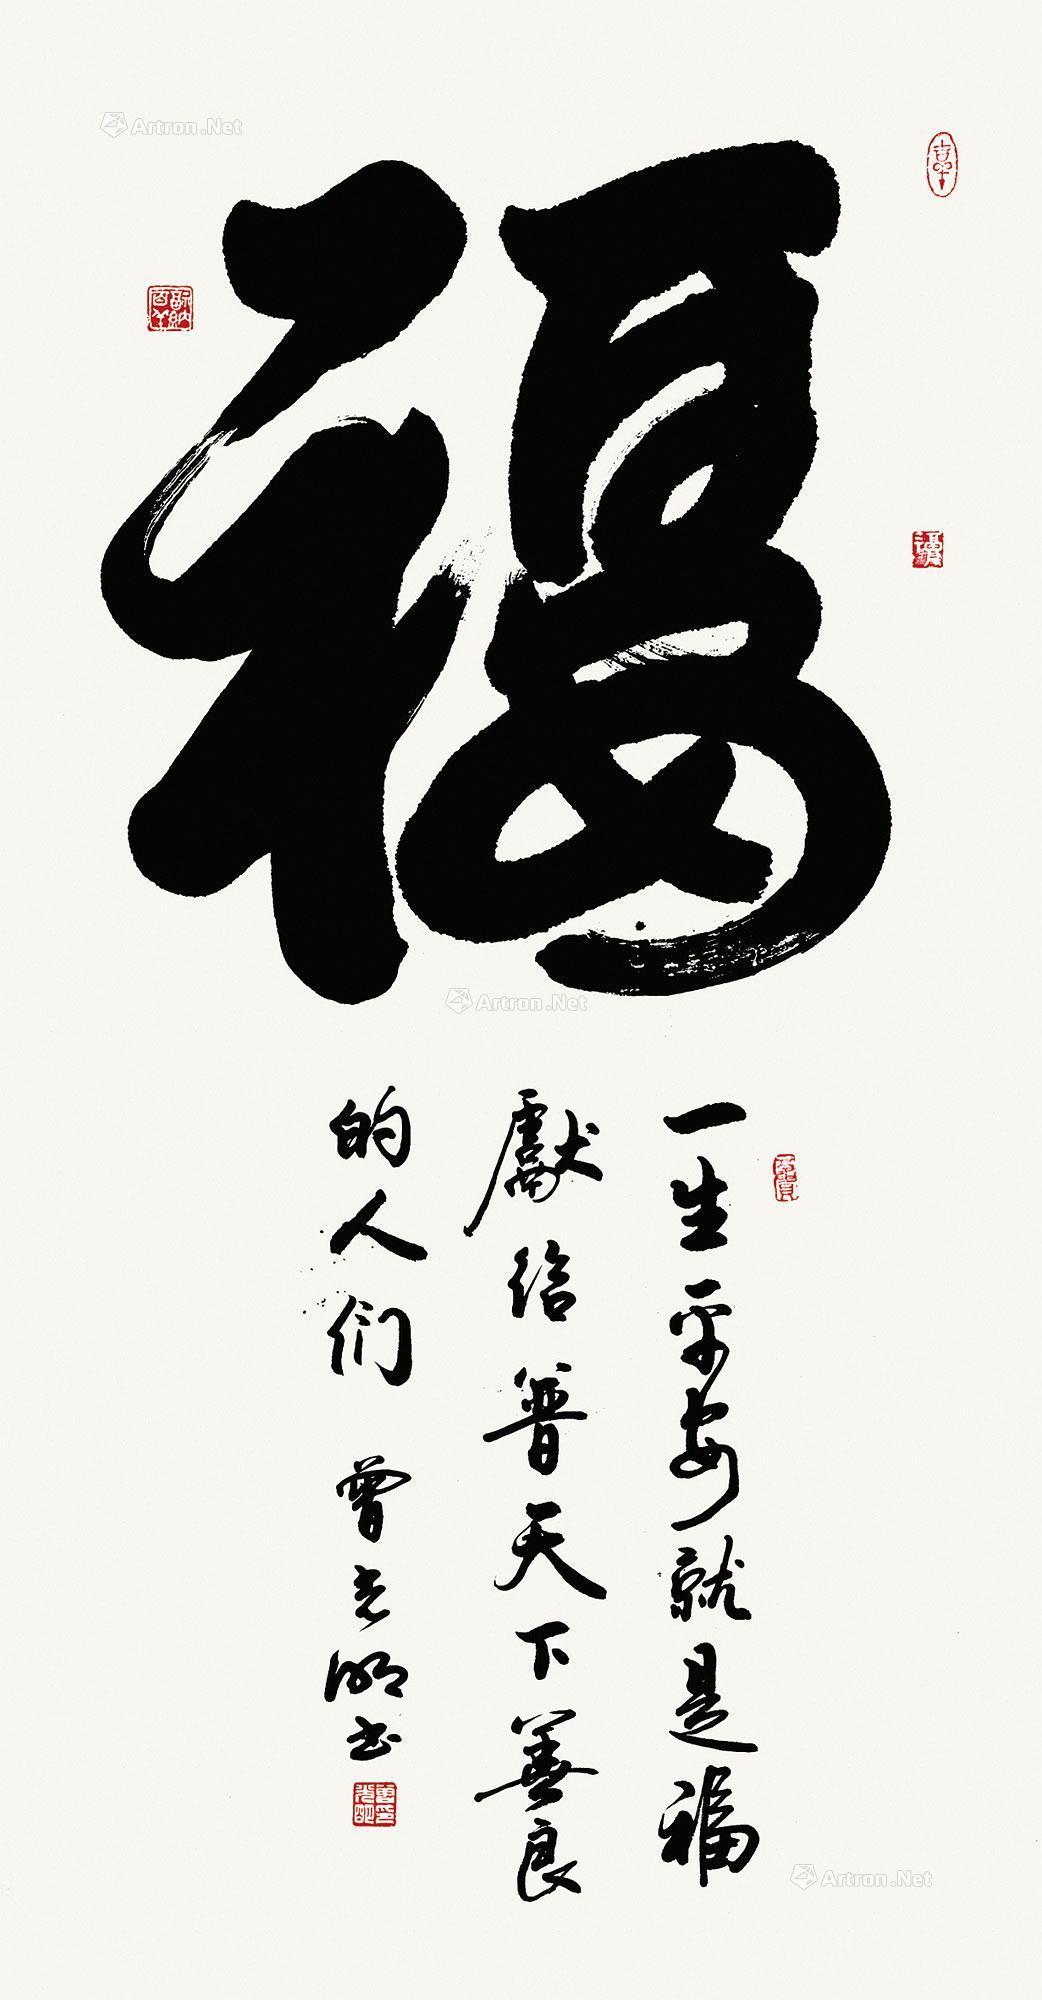 福
一生平安就是福
獻给普天下善良
的人们 曾光明书
Artron.Net
Artron.Net
Artron.Net